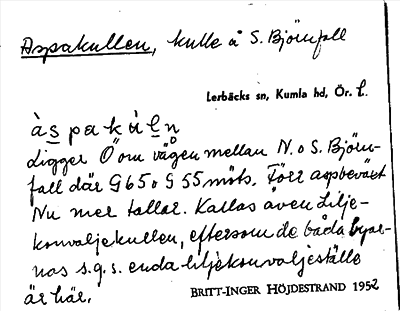 Aspakullen, kulle å S. Björnfall
Lerbäcks sn, Kumla hd, Ör. l.
àspakùḷn
Ligger Ö om vägen mellan N. o S. Björn-
fall där G65 o G55 möts. Förr aspbeväxt
Nu mer tallar. Kallas även Lilje-
konvaljekullen, eftersom de båda byar-
nas s.g.s. enda liljekonvaljeställe
är här.
BRITT-INGER HÖJDESTRAND 1952